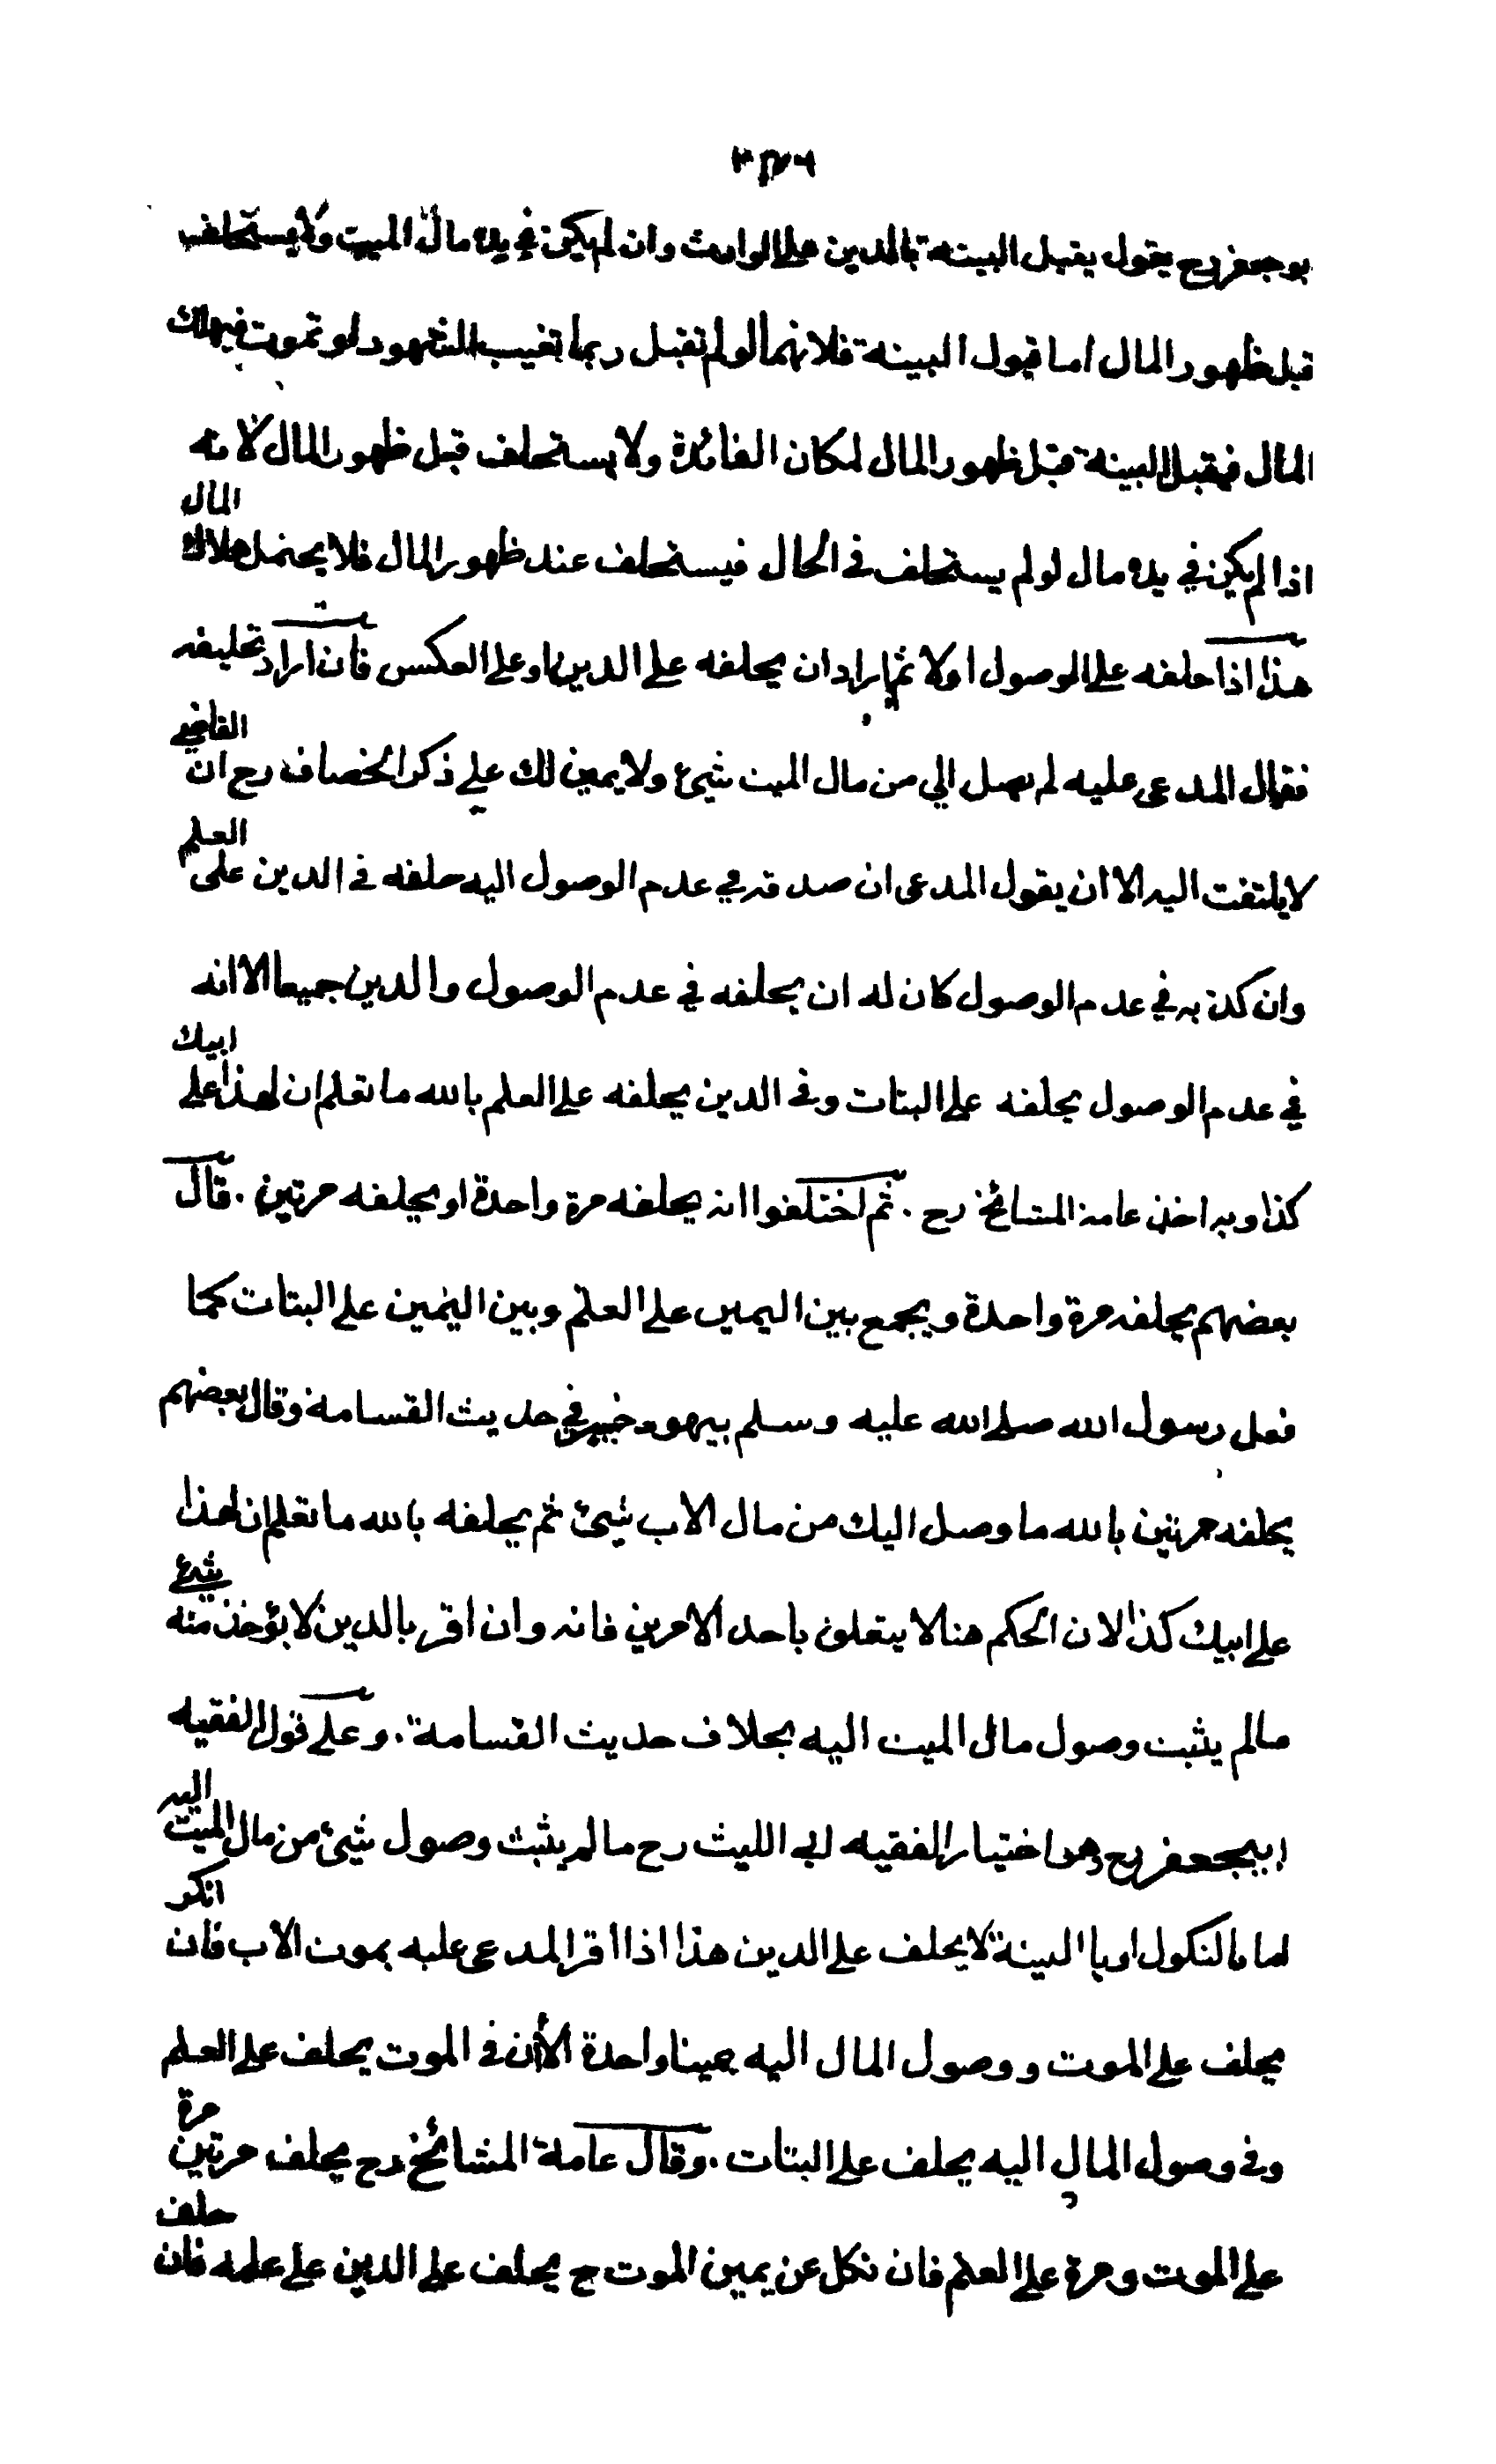 بوجعفر رح يقول يقبل البينة بالدين على الوارث وان لم يكن في يده مال الميت ولا يستحلف
قبل ظهور المال اما قبول البينة فلانها لو لم تقبل ربما تغيب الشهود او تموت فيهلك
المال فيقبل البينة قبل ظهور المال لمكان الفائدة ولا يستحلف قبل ظهور المال لانه
اذا لم يكن في يده مال لو لم يستحلف في الحال فيستحلف عند ظهور المال فلا يحتمل هلاك المال
هذا اذا حلفه على الوصول اولا ثم اراد ان يحلفه على الدين او على العكس فان اراد تحليفه
فقال المدعى عليه لم يصل الي من مال الميت شيئ ولا يمين لك علي ذكر الخصاف رح ان القاضي
لا يلتفت اليه الا ان يقول المدعى ان صدقه في عدم الوصول اليه حلفه في الدين على العلم
وان كذبه في عدم الوصول كان له ان يحلفه في عدم الوصول والدين جميعا الا انه
في عدم الوصول يحلفه على البتات وفي الدين يحلفه على العلم بالله ما تعلم ان لهذا على ابيك
كذا وبه اخذ عامة المشائخ رح . ثم اختلفوا انه يحلفه مرة واحدة او يحلفه مرتين . قال
بعضهم يحلفه مرة واحدة ويجمع بين اليمين على العلم وبين اليمين على البتات كما
فعل رسول الله صلى الله عليه وسلم بيهود خيبر في حديث القسامة وقال بعضهم
يحلفه مرتين بالله ما وصل اليك من مال الاب شيئ ثم يحلفه بالله ما تعلم ان لهذا
على ابيك كذا لان الحكم هنا لا يتعلق باحد الامرين فانه وان اقر بالدين لا يؤخذ منه شيئ
مالم يثبت وصول مال الميت اليه بخلاف حديث القسامة . وعلى قول الفقيه
ابي جعفر رح وهو اختيار الفقيه ابي الليث رح ما لم يثبت وصول شيئ من مال الميت اليه
اما بالنكول او با البينة لا يحلف على الدين هذا اذا اقر المدعى عليه بموت الاب فان انكر
يحلف على الموت ووصول المال اليه يمينا واحدة الا ان في الموت يحلف على العلم
وفي وصول المال اليه يحلف على البتات . وقال عامة المشائخ رح يحلف مرتين مرة
على الموت ومرة على العلم فان نكل عن يمين الموت ح يحلف على الدين على علمه فان حلف